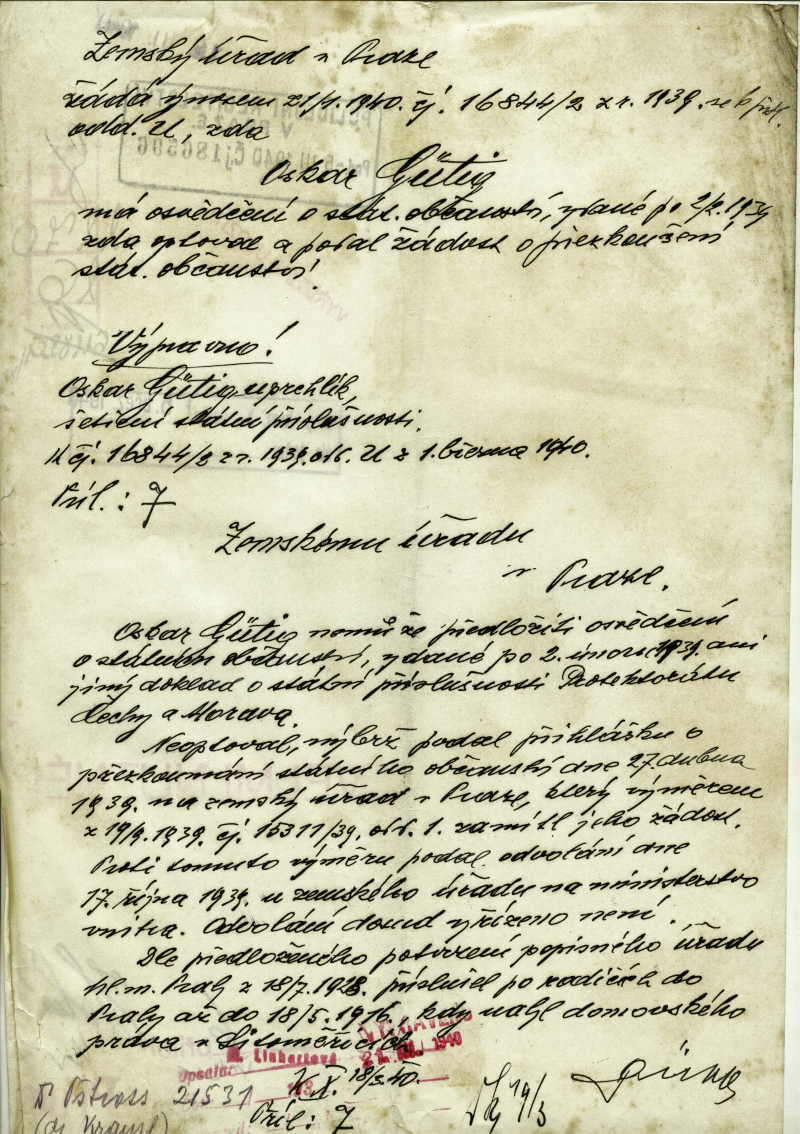 Zemský úřad v Praze
žádá výnosem z 1/1. 1940. čj. 16844/2 z r. 1939. se 6 příl.
odd. U, zda
Oskar Gütig
má osvědčení o stát. občanství, vydané po 2/2. 1939
zda optoval a podal žádost o přezkoušení
stát. občanství.
Výpravno!
Oskar Gütig uprchlík,
šetření státní příslušnosti.
K čj. 16844/3 z r. 1939. odd. U z 1. března 1940.
Příl.: 7
Zemskému úřadu
v Praze.
Oskar Gütig nemůže předložiti osvědčení
o státním občanství, vydané po 2. únoru 1939. ani
jiný doklad o státní příslušnosti Protektorátu
Čechy a Morava.
Neoptoval, nýbrž podal přihlášku o
přezkoumání státního občanství dne 27. dubna
1939. na zemský úřad v Praze, který výměrem
z 19/9. 1939. čj. 15311/39. odd. 1. zamítl jeho žádost.
Proti tomuto výměru podal odvolání dne
17. října 1939. u zemského úřadu na ministerstvo
vnitra. Odvolání dosud vyřízeno není.
Dle předloženého potvrzení popisného úřadu
hl. m. Prahy z 18/7. 1928. příslušel po rodičích do
Prahy až do 18/5. 1916., kdy nabyl domovského
práva v Litoměřicích.
M. Linhartová
Opsala:
1940
K.I. 18/3.40.
Příl.: 7
19/3
Dr Ostross 21531
(dr Kraus)